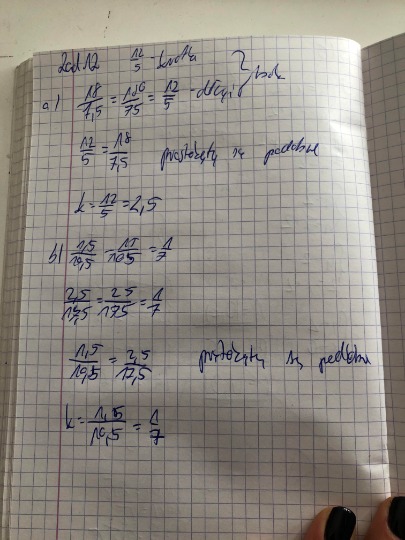 Zad 12 12/5 - krótki } boki
a) 18/7,5 = 180/75 = 12/5 - dłuższ
12/5 = 18/7,5 prostokąty są podobne
k = 12/5 = 2,5
b) 1,5/10,5 = 15/105 = 1/7
2,5/17,5 = 25/175 = 1/7
1,5/10,5 = 2,5/17,5 prostokąty są podobne
k = 1,5/10,5 = 1/7